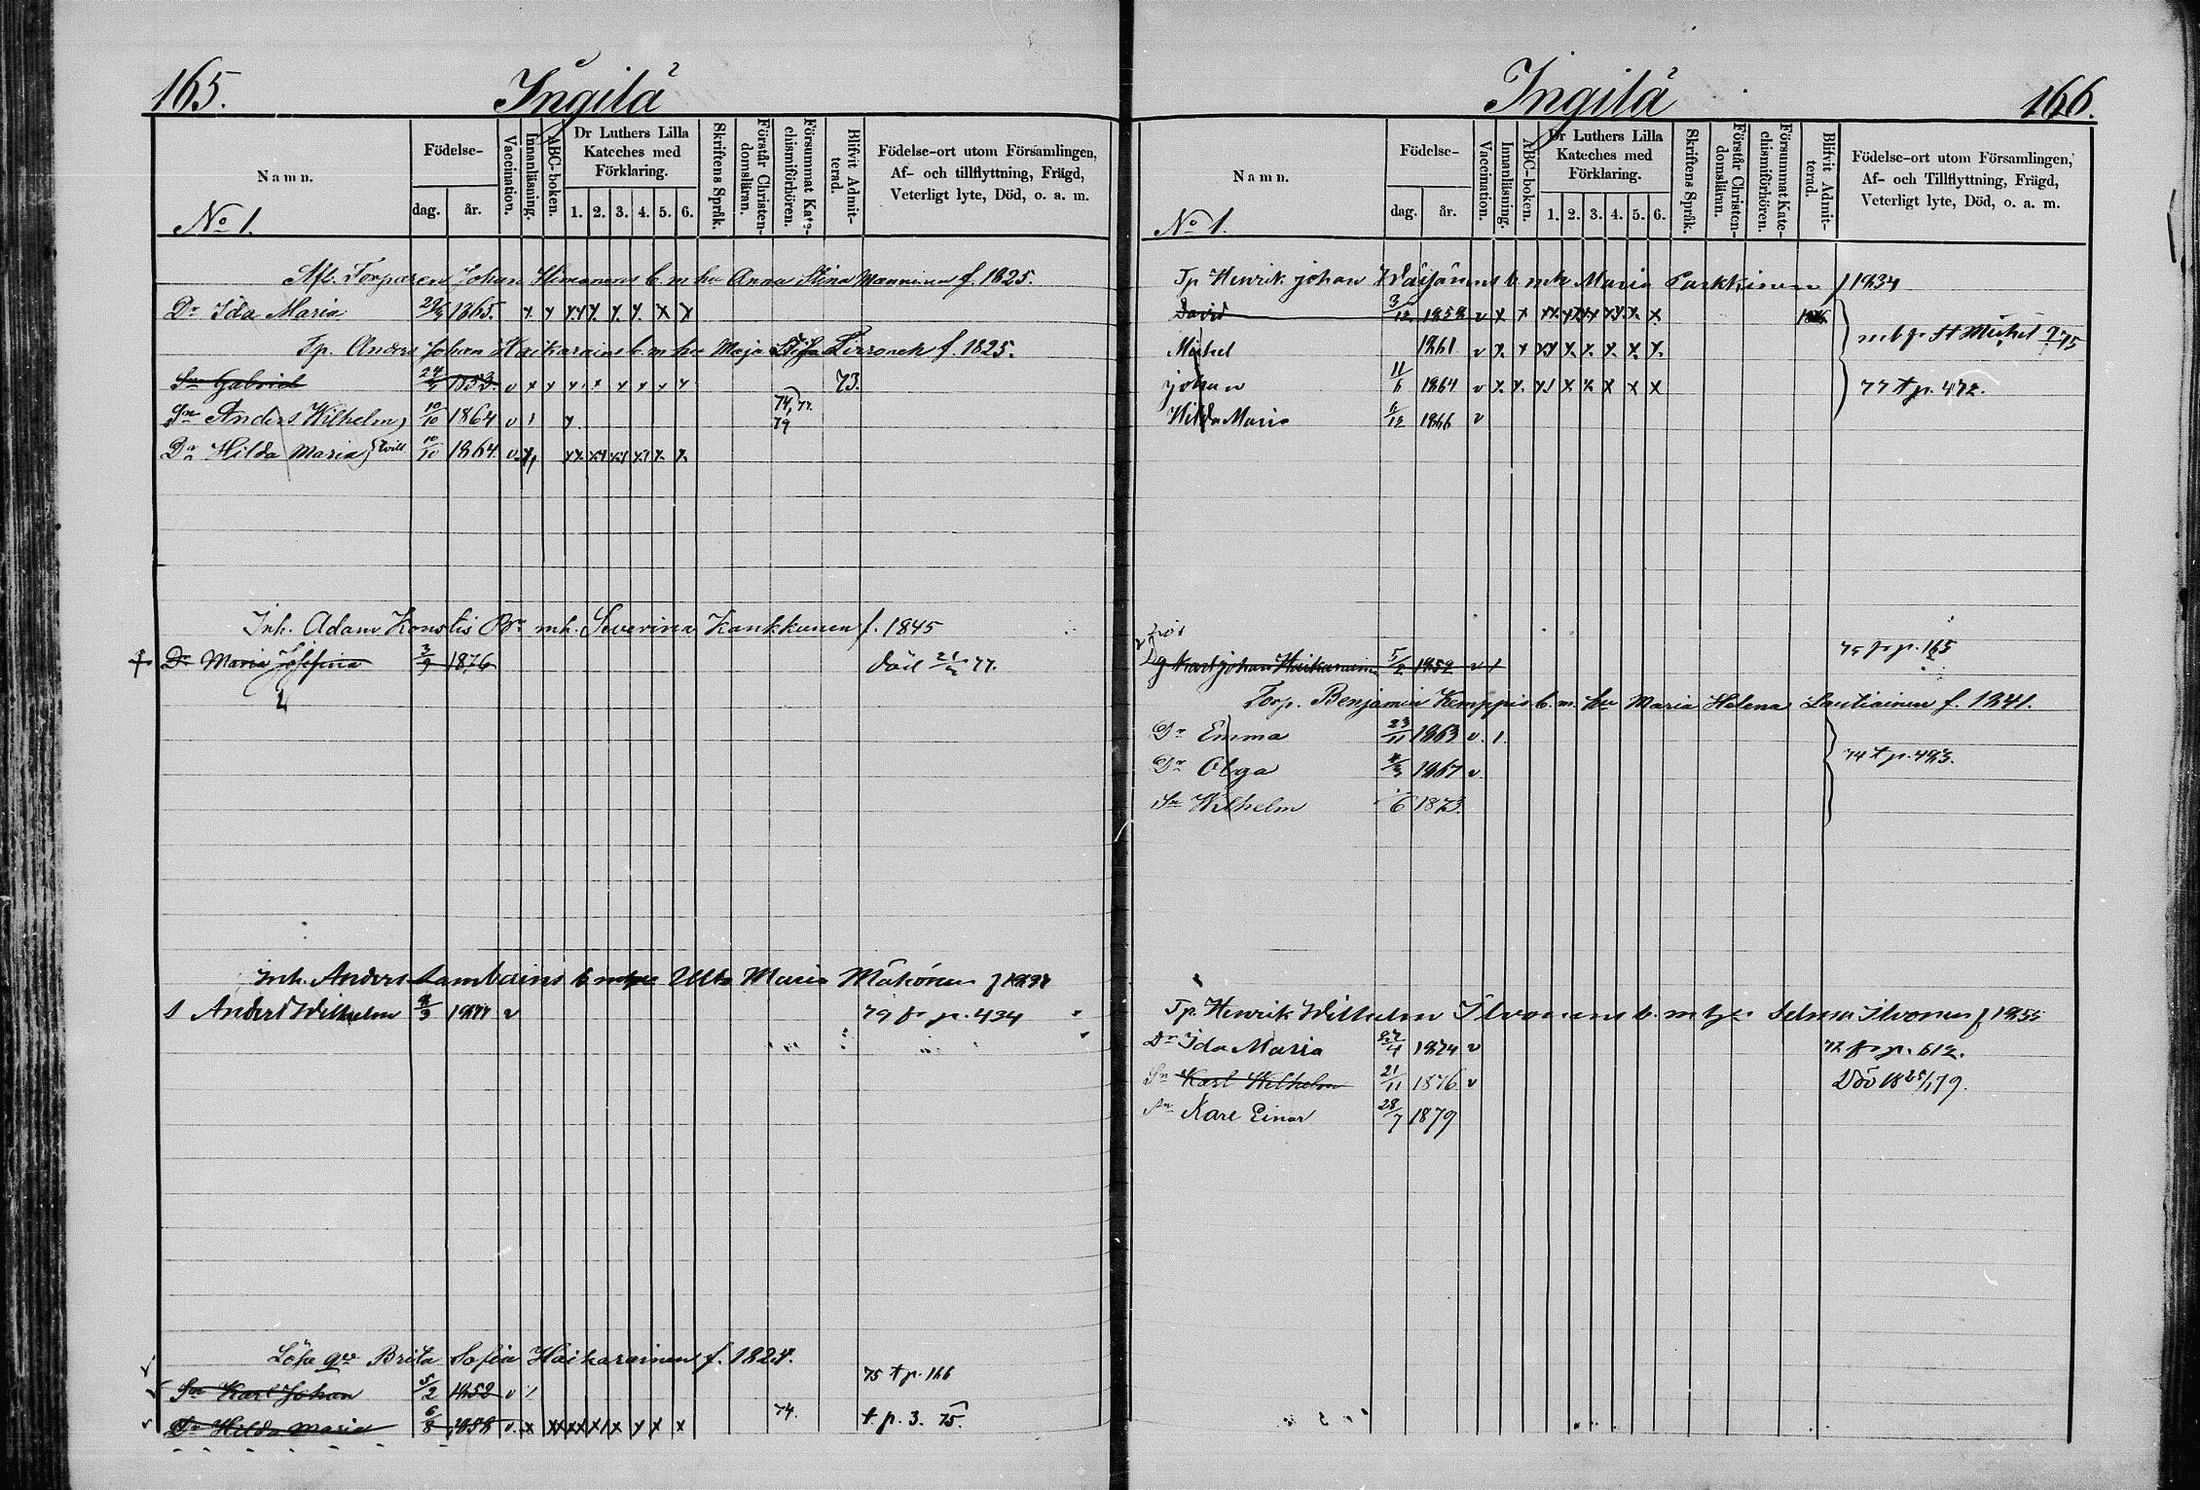 165. Ingilä
Namn. Födelse- dag. år. Vaccination. Innanläsning. ABC-boken. Dr Luthers Lilla Kateches med Förklaring. 1. 2. 3. 4. 5. 6. Skriftens Språk. Förstår Christendomsläran. Försummat Katechismiförhören. Blifvit Admitterad. Födelse-ort utom Församlingen, Af- och tillflyttning, Frägd, Veterligt lyte, Död, o. a. m.
No 1.
Afl. Torparen Johan Himanens b. m. hu Anna Stina Manninen f. 1825.
Dr Ida Maria 1865. x x x x x. x. x. x x
Tp. Anders Johan Haikarains b. m hu Maja Tirronen f. 1825.
Sn Gabriel 1853 v x x x x x x x x 73.
Sn Anders Wilhelm 10/10 1864 v 74, 77. 79
Dr Hilda Maria 10/10 1864 v
Inh. Adam Konstis Br mh. Severina Kankkunen f. 1845
Dr Maria Josefina 3/9 1876 77.
Inh. Anders Ulla Maria
s Anders Wilhelm 1877 v 79 fr p. 434
Lösa qv Brita Sofia Haikarainen f. 1824.
Sn Karl Johan 5/2 1852 v 1 75 t p. 166
Dr Hilda Maria 6/8 1858 v. x x x x x x x x x 74. t. p. 3. 75.
Ingilä 166.
Namn. Födelse- dag. år. Vaccination. Innanläsning. ABC-boken. Dr Luthers Lilla Kateches med Förklaring. 1. 2. 3. 4. 5. 6. Skriftens Språk. Förstår Christendomsläran. Försummat Katechismiförhören. Blifvit Admitterad. Födelse-ort utom Församlingen, Af- och Tillflyttning, Frägd, Veterligt lyte, Död, o. a. m.
No 1.
Tp Henrik Johan Väisänens b mh Maria Parkkinen f 1834
David 3/12 1858 v x x
Mikel 1861 v St Michel 75
Johan 11/6 1864 v 77 t p. 472.
Hilda Maria 1866 v
Karl Johan Haikarainen 5/2 1852 v 1 75 fr p. 165
Torp. Benjamin Kemppis b. m. hu Maria Helena Lautiainen f. 1841.
Dr Emma 23/11 1863 v. 1.
Dr Olga 1867 v. 74 t p. 493.
Sn Wilhelm 6 1873.
Tp. Henrik Wilhelm Ilvonens b. m h Selma Ilvonen f 1855
Dr Ida Maria 1874 v fr p. 612.
Sn Karl Wilhelm 21/11 1876 v Död 18 25/1 79.
Sn Karl Einar 28/7 1879